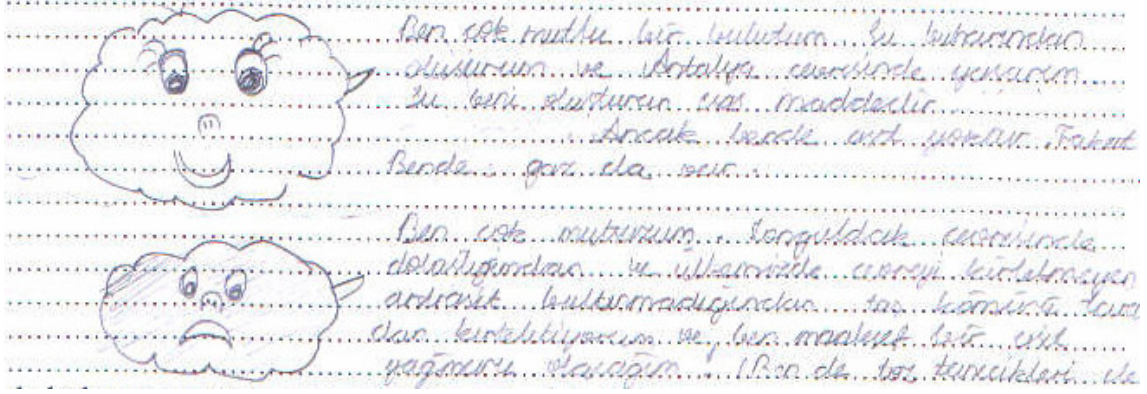 Ben çok mutlu bir bulutum. Su buharından
oluşurum ve Antalya çevresinde yaşarım.
Su beni oluşturan esas maddedir.
Ancak bende asit yoktur. Fakat
Bende gaz da var.
Ben çok mutsuzum. Zonguldak çevresinde
dolaştığımdan ve ülkemizde çevreyi kirletmeyen
antrasit bulunmadığından taş kömürü
dan kirletiliyorum ve ben maalesef bir asit
yağmuru olacağım. (Ben de toz tanecikleri de